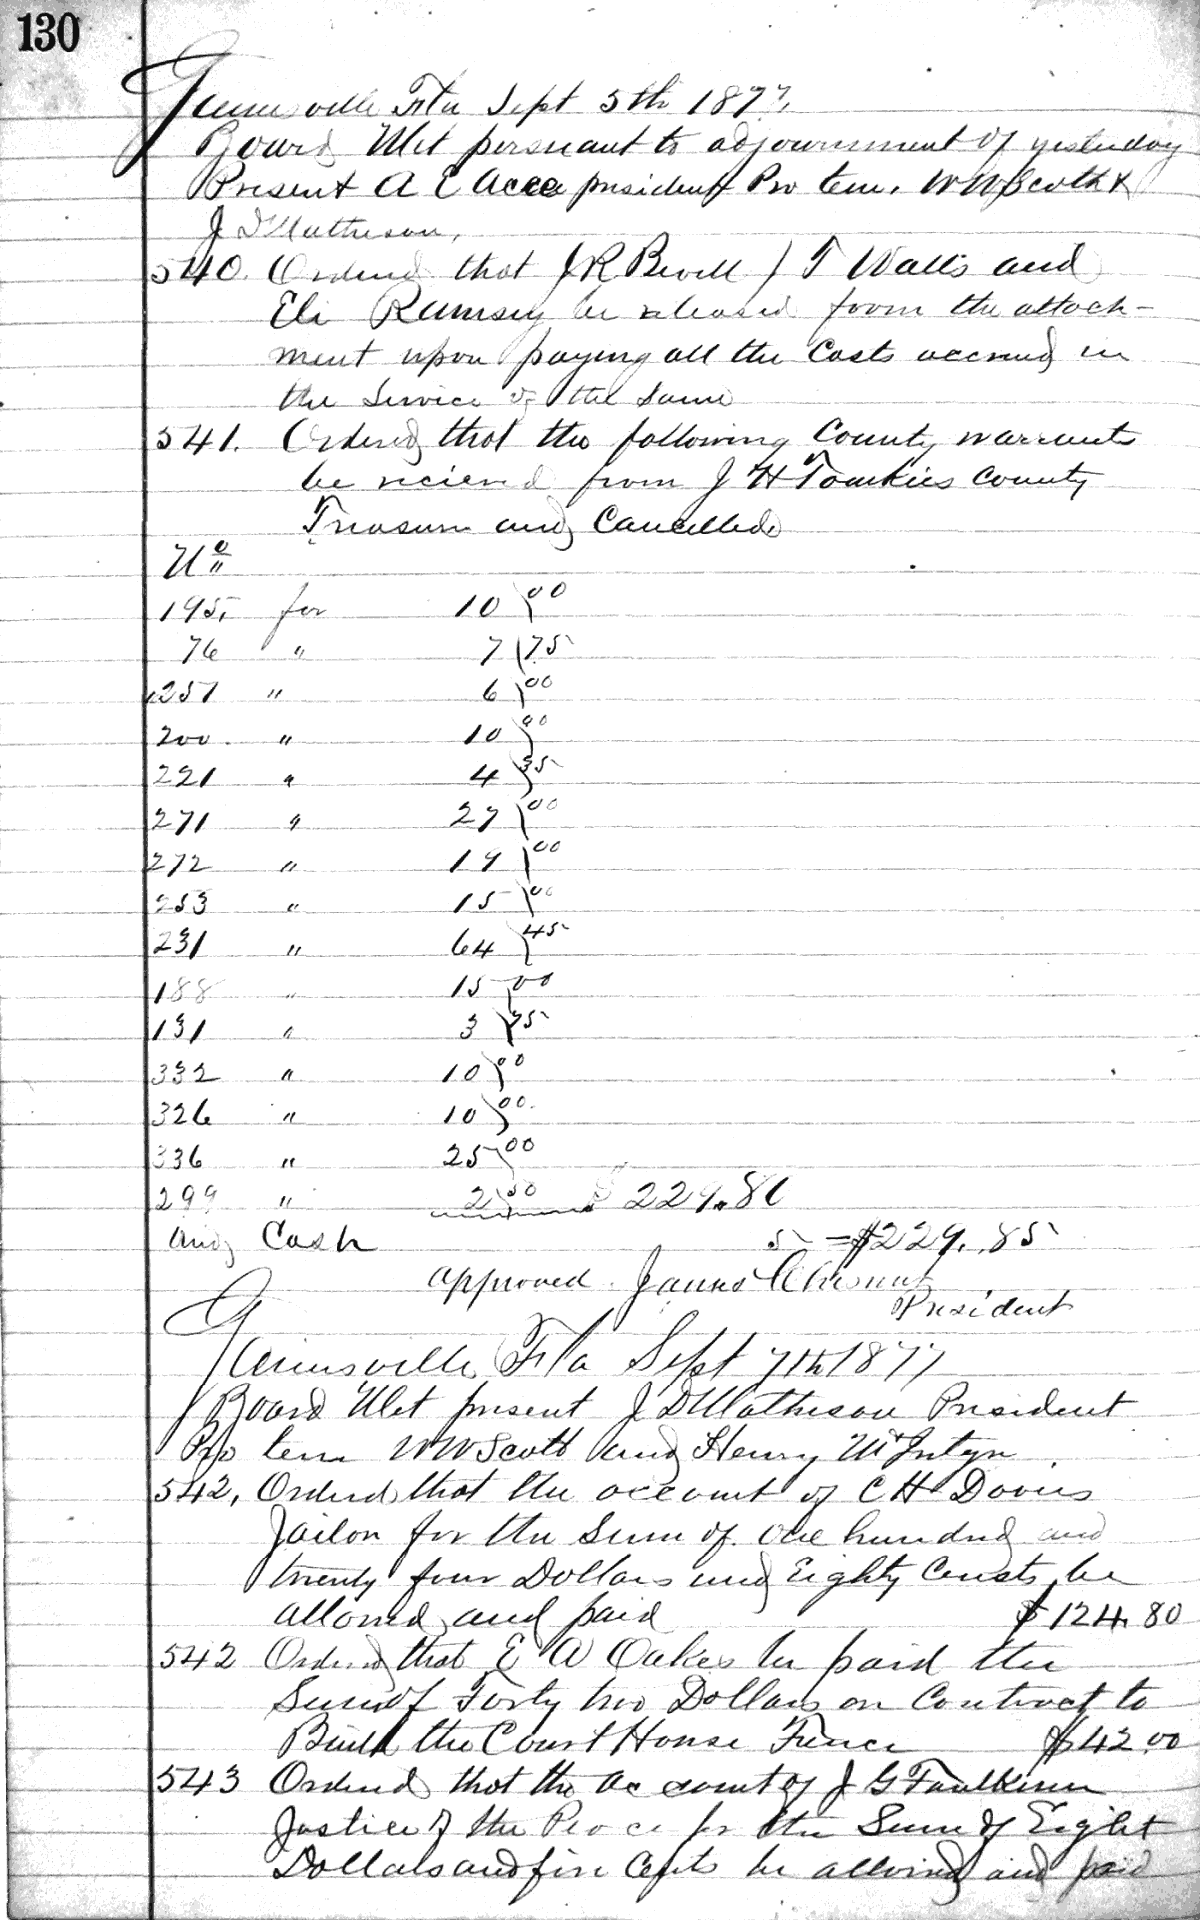 130
Gainesville Fla Sept 5th 1877.
Board Met persuant to adjournment of yesterday
Present A E president Pro tem, W W Scott &
J D Matheson,
540. Ordered that J R Bevill J T Walls and
Eli Ramsey be released from the attach-
ment upon paying all the Costs accrued in
the Service of the Same
541. Ordered that the following County warrants
be recieved from J H Tomkies County
Treasurer and Cancelled
No
195, for 10 00
76 " 7 75
257 " 6 00
200 . " 10 00
221 " 4 35
271 " 27 00
272 " 19 00
253 " 15 00
231 " 64 45
188 " 15 00
131 " 3 75
332 " 10 00
326 " 10 00.
336 " 25 00
299 " 2 50 $ 229.80
and Cash 5 = $229.85
approved. James Chesnut
President
Gainesville, Fla Sept 7th 1877
Board Met present J D Matheson President
Pro tem W W Scott and Henry McIntyr
542, Ordered that the account of C H Davis
Jailor for the Sum of one hundred and
twenty four Dollars and Eighty Cents be
allowed and paid $124.80
542 Ordered that E A Oakes be paid the
Sum of Forty two Dollars on Contract to
Build the Court House Fence $42.00
543 Ordered that the ac count of J G Faulkner
Justice of the Peace for the Sum of Eight
Dollars and five Cents be allowed and paid